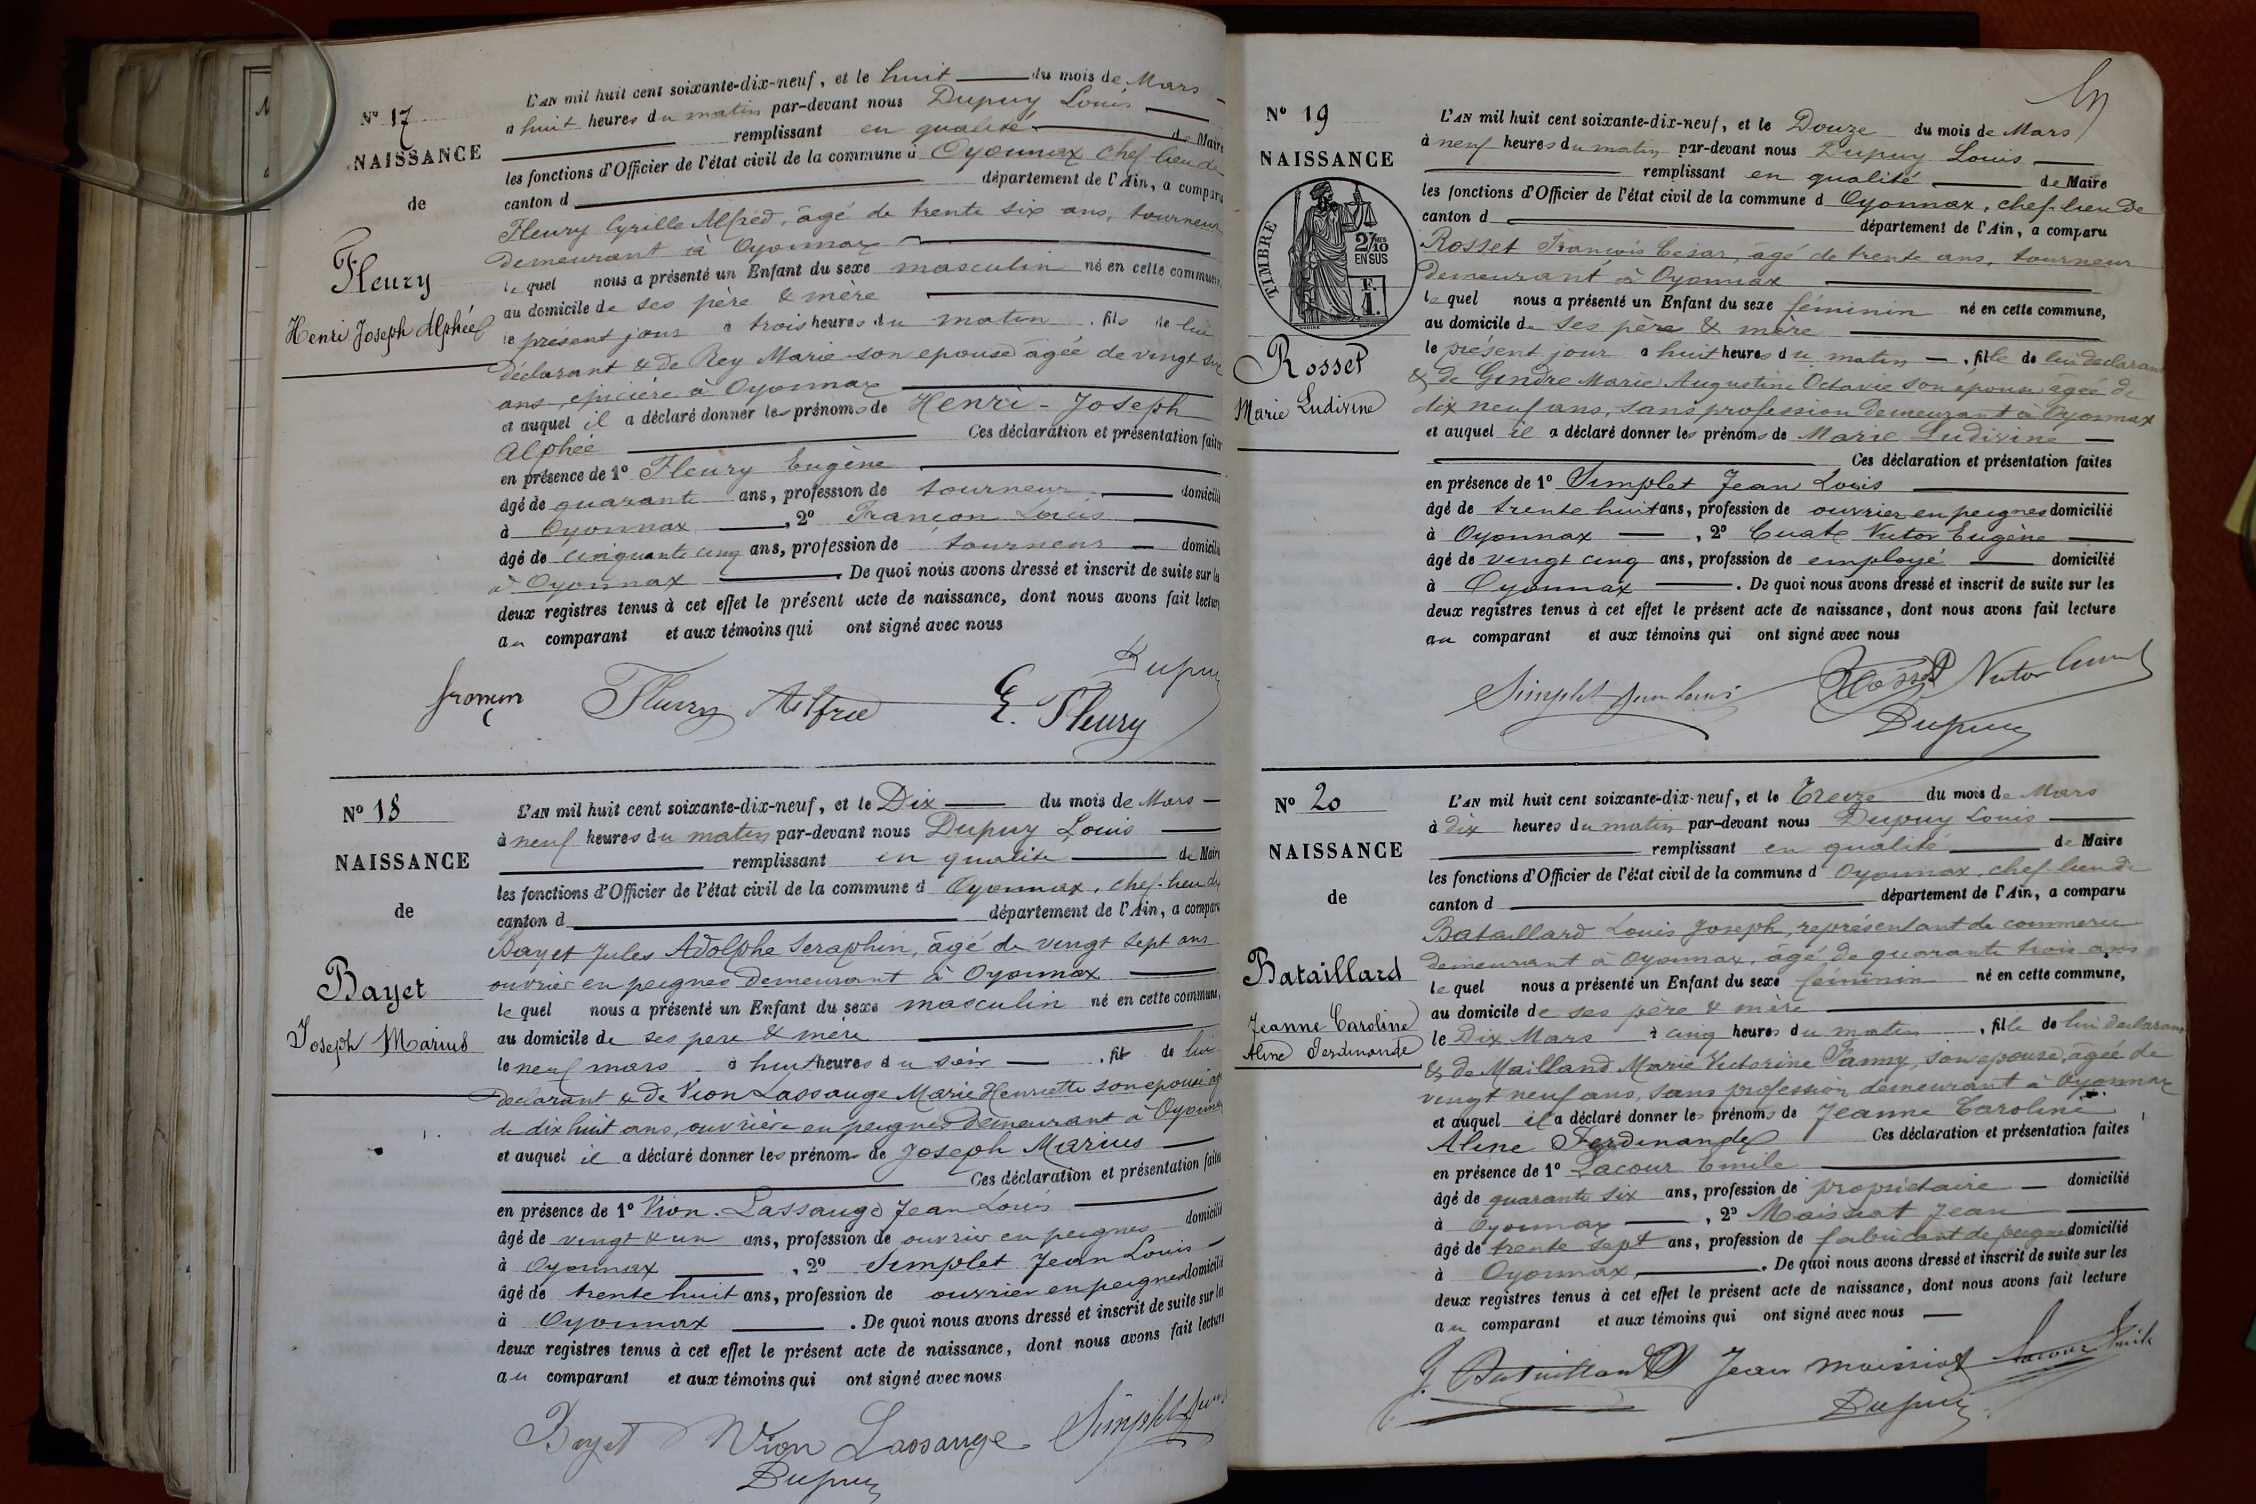 Nº 17
NAISSANCE
de
Fleury
Henri Joseph Alphée
L'AN mil huit cent soixante-dix-neuf, et le huit du mois de Mars
a huit heures du matin par-devant nous Dupuy Louis
remplissant en qualité de Maire
les fonctions d'Officier de l'état civil de la commune d Oyonnax chef lieu de
canton d département de l'Ain, a comparu
Fleury Cyrille Alfred, âgé de trente six ans, tourneur
demeurant à Oyonnax
le quel nous a présenté un Enfant du sexe masculin né en cette commune,
au domicile de ses père & mère
le présent jour à trois heures du matin, fils de lui
déclarant & de Rey Marie son epouse âgée de vingt six
ans, epicière à Oyonnax
et auquel il a déclaré donner les prénoms de Henri - Joseph
Alphée Ces déclaration et présentation faites
en présence de 1º Fleury Eugène
âgé de quarante ans, profession de tourneur domicilié
à Oyonnax, 2º Françon Louis
âgé de cinquante cinq ans, profession de tourneur domicilié
à Oyonnax. De quoi nous avons dressé et inscrit de suite sur les
deux registres tenus à cet effet le présent acte de naissance, dont nous avons fait lecture
au comparant et aux témoins qui ont signé avec nous
Dupuy
françon Fleury Alfred E. Fleury
Nº 18
NAISSANCE
de
Bayet
Joseph Marius
L'AN mil huit cent soixante-dix-neuf, et le Dix du mois de Mars
à neuf heures du matin par-devant nous Dupuy Louis
remplissant en qualité de Maire
les fonctions d'Officier de l'état civil de la commune d Oyonnax, chef-lieu de
canton d département de l'Ain, a comparu
Bayet Jules Adolphe Seraphin, âgé de vingt sept ans
ouvrier en peignes demeurant à Oyonnax
le quel nous a présenté un Enfant du sexe masculin né en cette commune,
au domicile de ses père & mère
le neuf mars à huit heures du soir, fils de lui
declarant & de Vion Lassauge Marie Henriette son epouse agée
de dix huit ans, ouvrière en peignes demeurant à Oyonnax
et auquel il a déclaré donner les prénoms de Joseph Marius
Ces déclaration et présentation faites
en présence de 1º Vion-Lassauge Jean Louis
âgé de vingt & un ans, profession de ouvrier en peignes domicilié
à Oyonnax, 2º Simplet Jean Louis
âgé de trente huit ans, profession de ouvrier en peignes domicilié
à Oyonnax. De quoi nous avons dressé et inscrit de suite sur les
deux registres tenus à cet effet le présent acte de naissance, dont nous avons fait lecture
au comparant et aux témoins qui ont signé avec nous
Bayet Vion Lassauge Simplet Jean
Dupuy
Nº 19
NAISSANCE
TIMBRE
2/10 EN SUS
F. 1.
Rosset
Marie Ludivine
L'AN mil huit cent soixante-dix-neuf, et le Douze du mois de Mars
à neuf heures du matin par-devant nous Dupuy Louis
remplissant en qualité de Maire
les fonctions d'Officier de l'état civil de la commune d Oyonnax, chef-lieu de
canton d département de l'Ain, a comparu
Rosset François César, âgé de trente ans, tourneur
demeurant à Oyonnax
le quel nous a présenté un Enfant du sexe féminin né en cette commune,
au domicile de ses père & mère
le présent jour à huit heures du matin, fille de lui declarant
& de Gindre Marie Augustine Octavie son epouse agée de
dix neuf ans, sans profession demeurant à Oyonnax
et auquel il a déclaré donner les prénoms de Marie Ludivine
Ces déclaration et présentation faites
en présence de 1º Simplet Jean Louis
âgé de trente huit ans, profession de ouvrier en peignes domicilié
à Oyonnax, 2º Victor Eugène
âgé de vingt cinq ans, profession de employé domicilié
à Oyonnax. De quoi nous avons dressé et inscrit de suite sur les
deux registres tenus à cet effet le présent acte de naissance, dont nous avons fait lecture
au comparant et aux témoins qui ont signé avec nous
Simplet Jean Louis Rosset Victor
Dupuy
Nº 20
NAISSANCE
de
Bataillard
Jeanne Caroline
Aline Ferdinande
L'AN mil huit cent soixante-dix-neuf, et le Treize du mois de Mars
à dix heures du matin par-devant nous Dupuy Louis
remplissant en qualité de Maire
les fonctions d'Officier de l'état civil de la commune d Oyonnax, chef-lieu de
canton d département de l'Ain, a comparu
Bataillard Louis Joseph, représentant de commerce
demeurant à Oyonnax, âgé de quarante trois ans
le quel nous a présenté un Enfant du sexe féminin né en cette commune,
au domicile de ses père & mère
le Dix Mars à cinq heures du matin, fille de lui declarant
& de Mailland Marie Victorine Fanny, son epouse, âgée de
vingt neuf ans, sans profession demeurant à Oyonnax
et auquel il a déclaré donner les prénoms de Jeanne Caroline
Aline Ferdinande Ces déclaration et présentation faites
en présence de 1º Lacour Emile
âgé de quarante six ans, profession de propriétaire domicilié
à Oyonnax, 2º Moissiat Jean
âgé de trente sept ans, profession de fabricant de peignes domicilié
à Oyonnax. De quoi nous avons dressé et inscrit de suite sur les
deux registres tenus à cet effet le présent acte de naissance, dont nous avons fait lecture
au comparant et aux témoins qui ont signé avec nous
J. Bataillard Jean Moissiat Lacour Emile
Dupuy